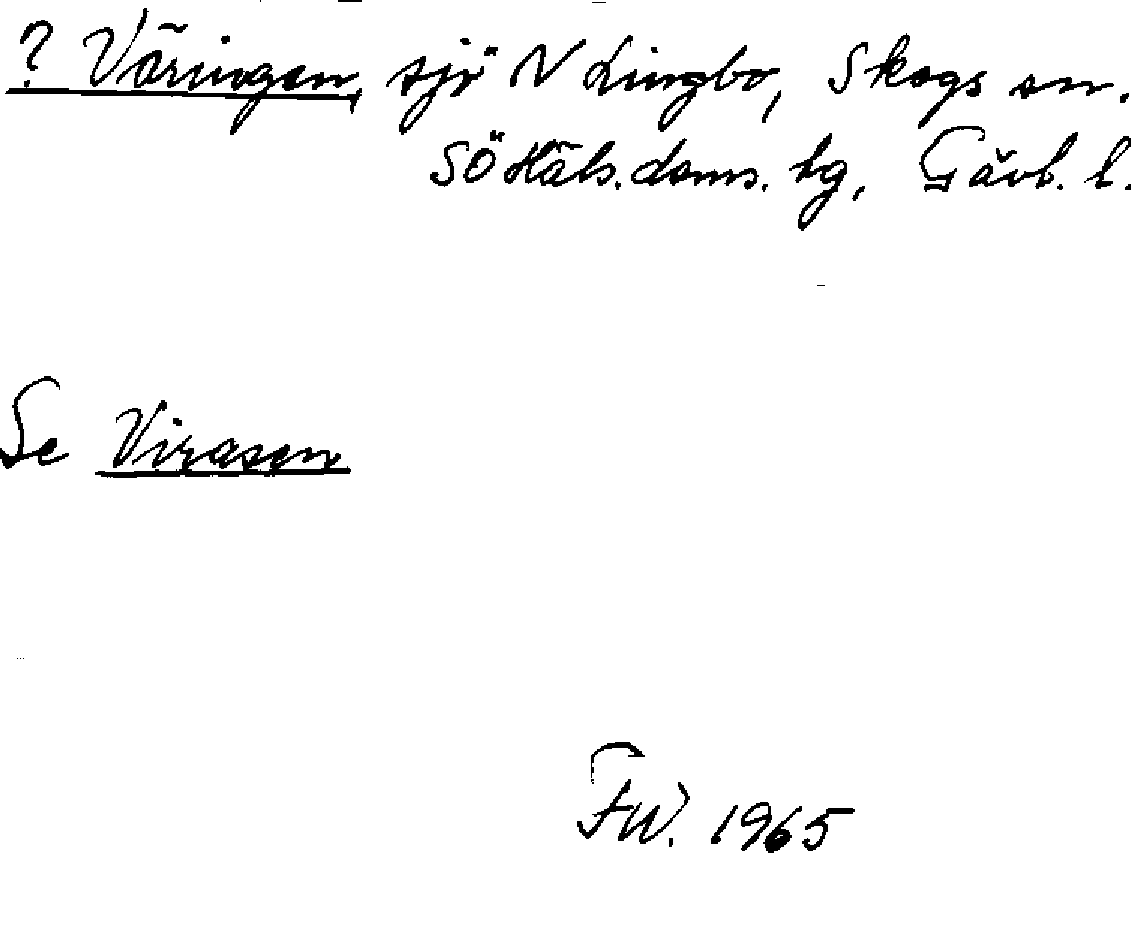 ? Väringen, sjö N Lingbo, Skogs sn.
SÖ Häls. doms. tg, Gävl. l.
Se Virasen
FW. 1965